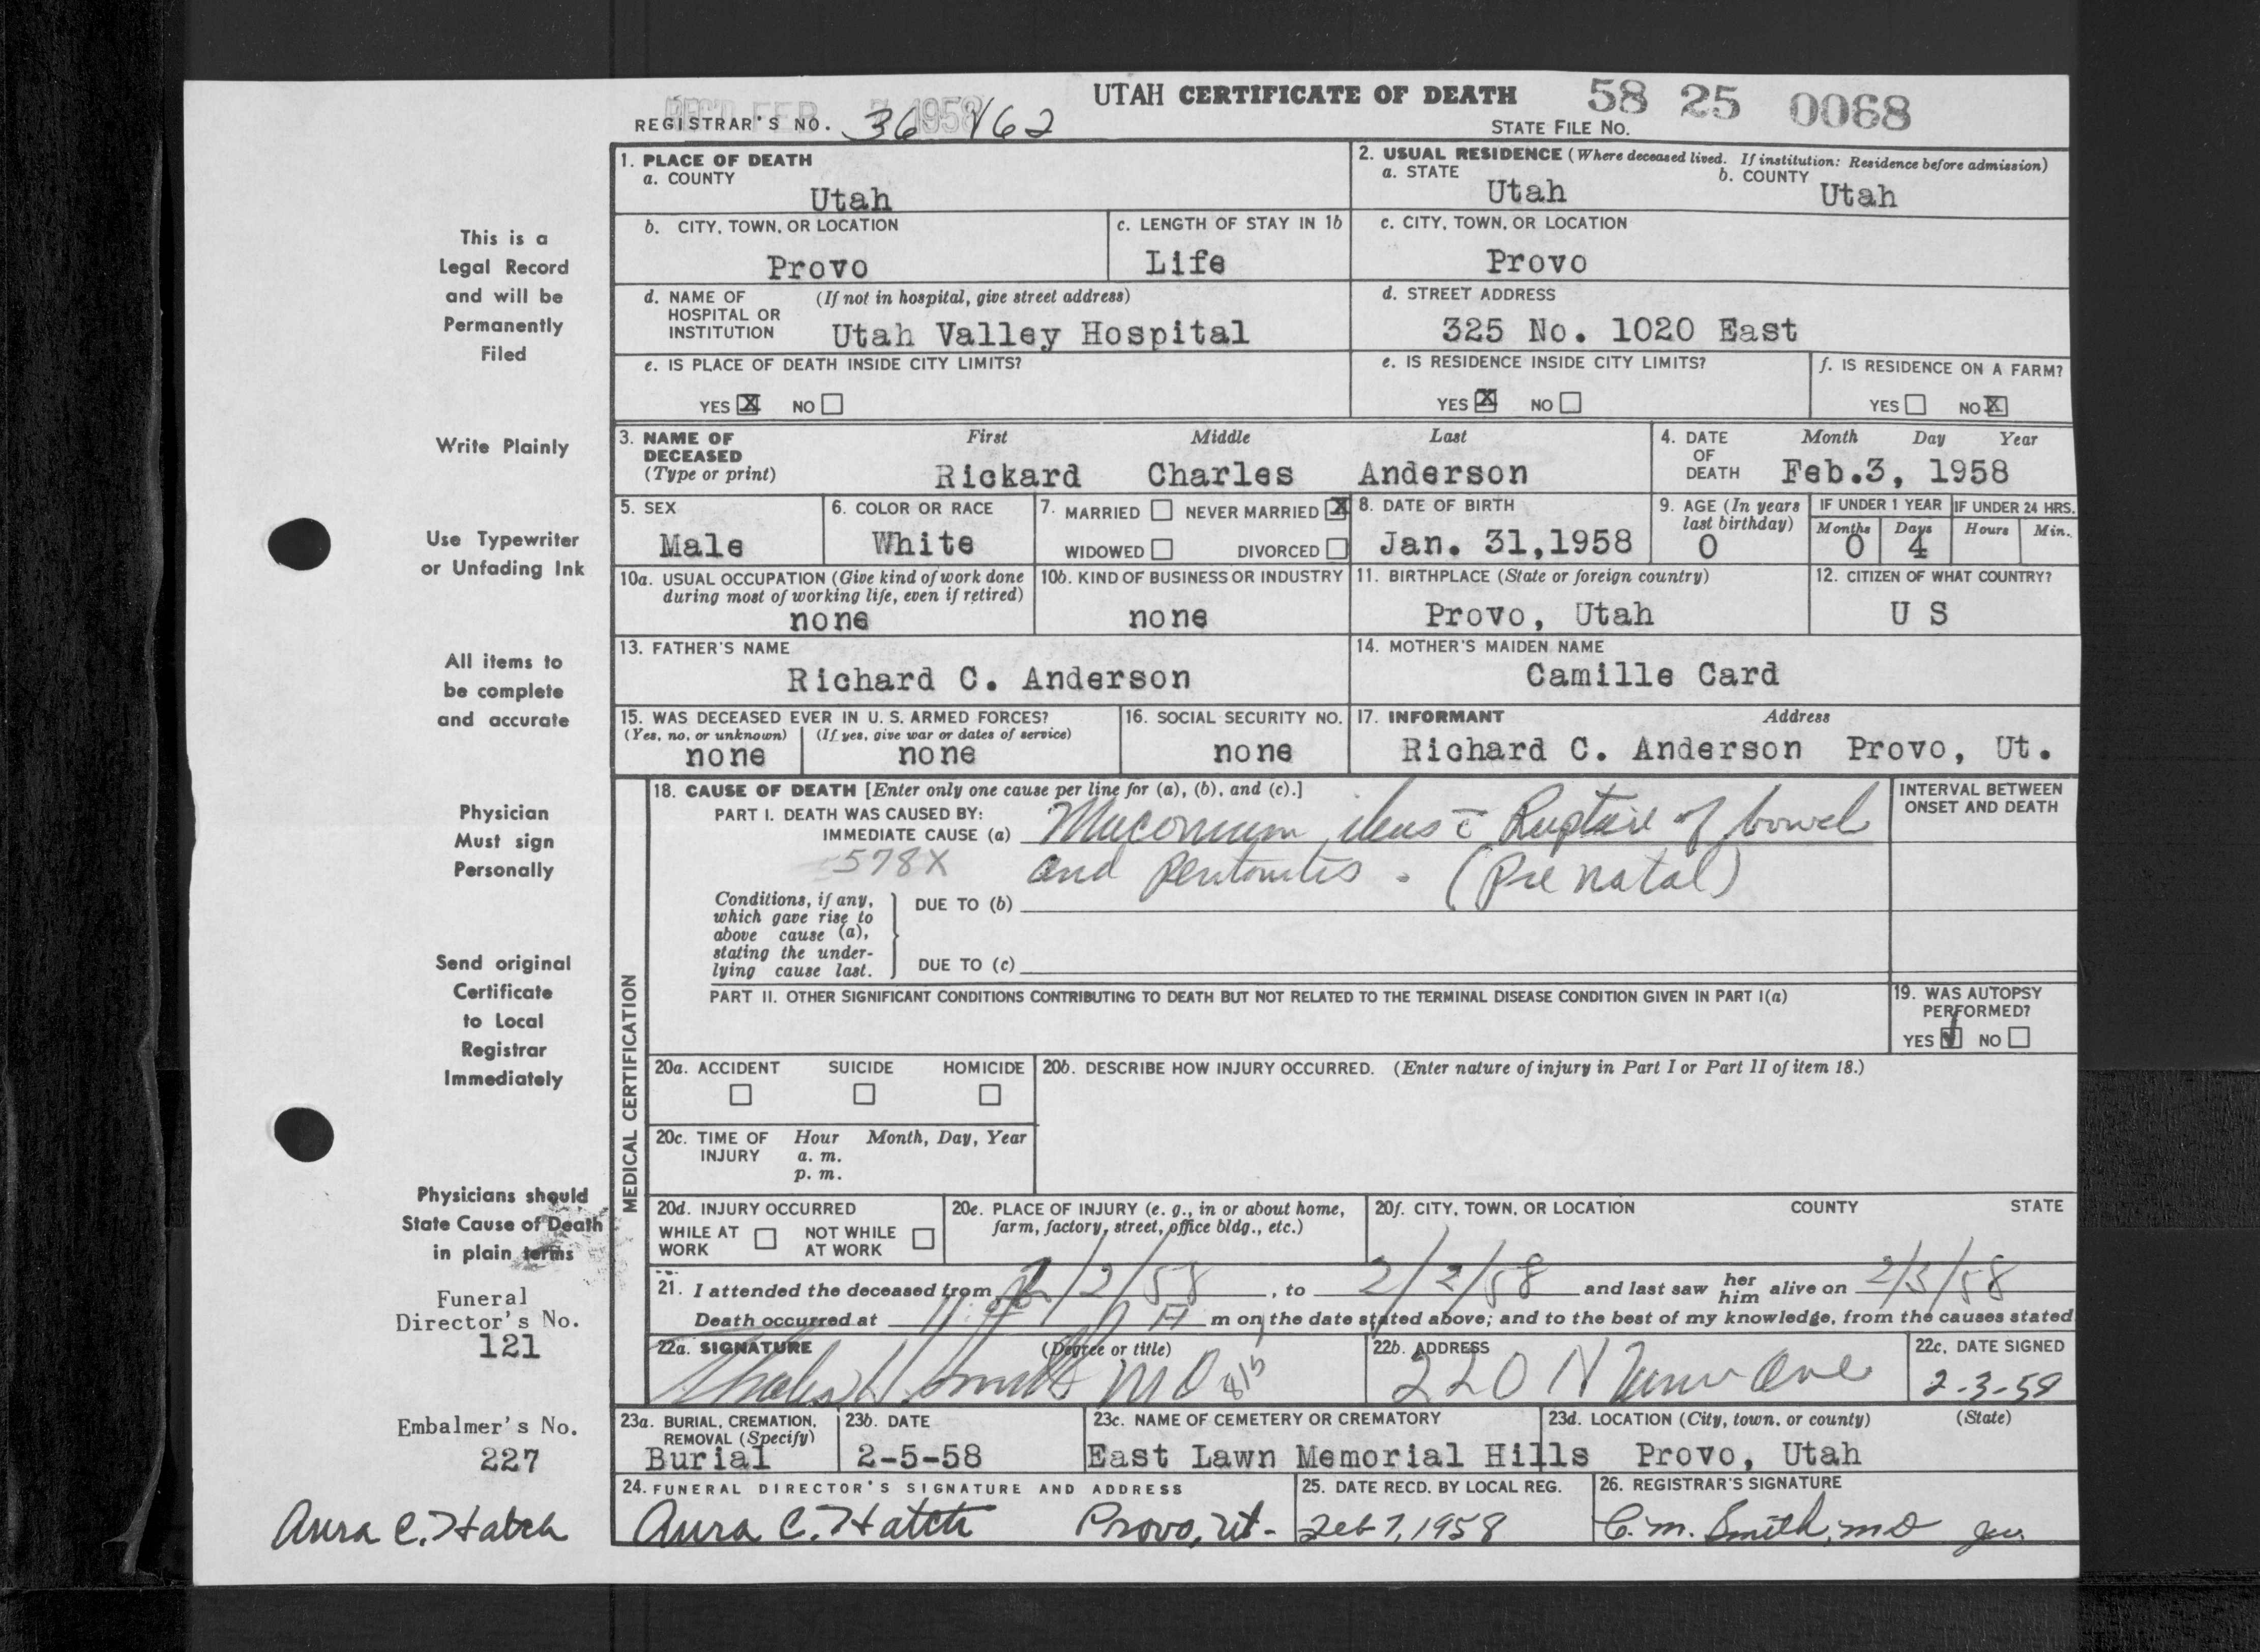 UTAH CERTIFICATE OF DEATH
58 25 0068
REC'D FEB 7 1958
REGISTRAR'S NO. 36 162
STATE FILE NO.
1. PLACE OF DEATH
a. COUNTY
Utah
2. USUAL RESIDENCE (Where deceased lived. If institution: Residence before admission)
a. STATE
Utah
b. COUNTY
Utah
b. CITY, TOWN, OR LOCATION
Provo
c. LENGTH OF STAY IN 1b
Life
c. CITY, TOWN, OR LOCATION
Provo
d. NAME OF HOSPITAL OR INSTITUTION
(If not in hospital, give street address)
Utah Valley Hospital
d. STREET ADDRESS
325 No. 1020 East
e. IS PLACE OF DEATH INSIDE CITY LIMITS?
YES X NO
e. IS RESIDENCE INSIDE CITY LIMITS?
YES X NO
f. IS RESIDENCE ON A FARM?
YES NO X
3. NAME OF DECEASED
(Type or print)
First Middle Last
Rickard Charles Anderson
4. DATE OF DEATH
Month Day Year
Feb.3, 1958
5. SEX
Male
6. COLOR OR RACE
White
7. MARRIED NEVER MARRIED X
WIDOWED DIVORCED
8. DATE OF BIRTH
Jan. 31,1958
9. AGE (In years last birthday)
0
IF UNDER 1 YEAR
Months Days
0 4
IF UNDER 24 HRS.
Hours Min.
10a. USUAL OCCUPATION (Give kind of work done during most of working life, even if retired)
none
10b. KIND OF BUSINESS OR INDUSTRY
none
11. BIRTHPLACE (State or foreign country)
Provo, Utah
12. CITIZEN OF WHAT COUNTRY?
U S
13. FATHER'S NAME
Richard C. Anderson
14. MOTHER'S MAIDEN NAME
Camille Card
15. WAS DECEASED EVER IN U. S. ARMED FORCES?
(Yes, no, or unknown) (If yes, give war or dates of service)
none none
16. SOCIAL SECURITY NO.
none
17. INFORMANT Address
Richard C. Anderson Provo, Ut.
MEDICAL CERTIFICATION
18. CAUSE OF DEATH [Enter only one cause per line for (a), (b), and (c).]
PART I. DEATH WAS CAUSED BY:
IMMEDIATE CAUSE (a) Muconium ileus c̄ Rupture of bowel
578X and peritonitis. (Pre natal)
INTERVAL BETWEEN ONSET AND DEATH
Conditions, if any, which gave rise to above cause (a), stating the underlying cause last.
DUE TO (b)
DUE TO (c)
PART II. OTHER SIGNIFICANT CONDITIONS CONTRIBUTING TO DEATH BUT NOT RELATED TO THE TERMINAL DISEASE CONDITION GIVEN IN PART I(a)
19. WAS AUTOPSY PERFORMED?
YES ✓ NO
20a. ACCIDENT SUICIDE HOMICIDE
20b. DESCRIBE HOW INJURY OCCURRED. (Enter nature of injury in Part I or Part II of item 18.)
20c. TIME OF INJURY
Hour Month, Day, Year
a. m.
p. m.
20d. INJURY OCCURRED
WHILE AT WORK NOT WHILE AT WORK
20e. PLACE OF INJURY (e. g., in or about home, farm, factory, street, office bldg., etc.)
20f. CITY, TOWN, OR LOCATION COUNTY STATE
21. I attended the deceased from 2/2/58, to 2/2/58 and last saw her him alive on 2/3/58
Death occurred at A m on the date stated above; and to the best of my knowledge, from the causes stated
22a. SIGNATURE (Degree or title)
Smith MD
22b. ADDRESS
220 N Ave
22c. DATE SIGNED
2-3-58
23a. BURIAL, CREMATION, REMOVAL (Specify)
Burial
23b. DATE
2-5-58
23c. NAME OF CEMETERY OR CREMATORY
East Lawn Memorial Hills
23d. LOCATION (City, town, or county) (State)
Provo, Utah
24. FUNERAL DIRECTOR'S SIGNATURE AND ADDRESS
Aura C. Hatch Provo, Ut-
25. DATE RECD. BY LOCAL REG.
Feb 7, 1958
26. REGISTRAR'S SIGNATURE
C. M. Smith, MD
This is a
Legal Record
and will be
Permanently
Filed
Write Plainly
Use Typewriter
or Unfading Ink
All items to
be complete
and accurate
Physician
Must sign
Personally
Send original
Certificate
to Local
Registrar
Immediately
Physicians should
State Cause of Death
in plain terms
Funeral
Director's No.
121
Embalmer's No.
227
Aura C. Hatch